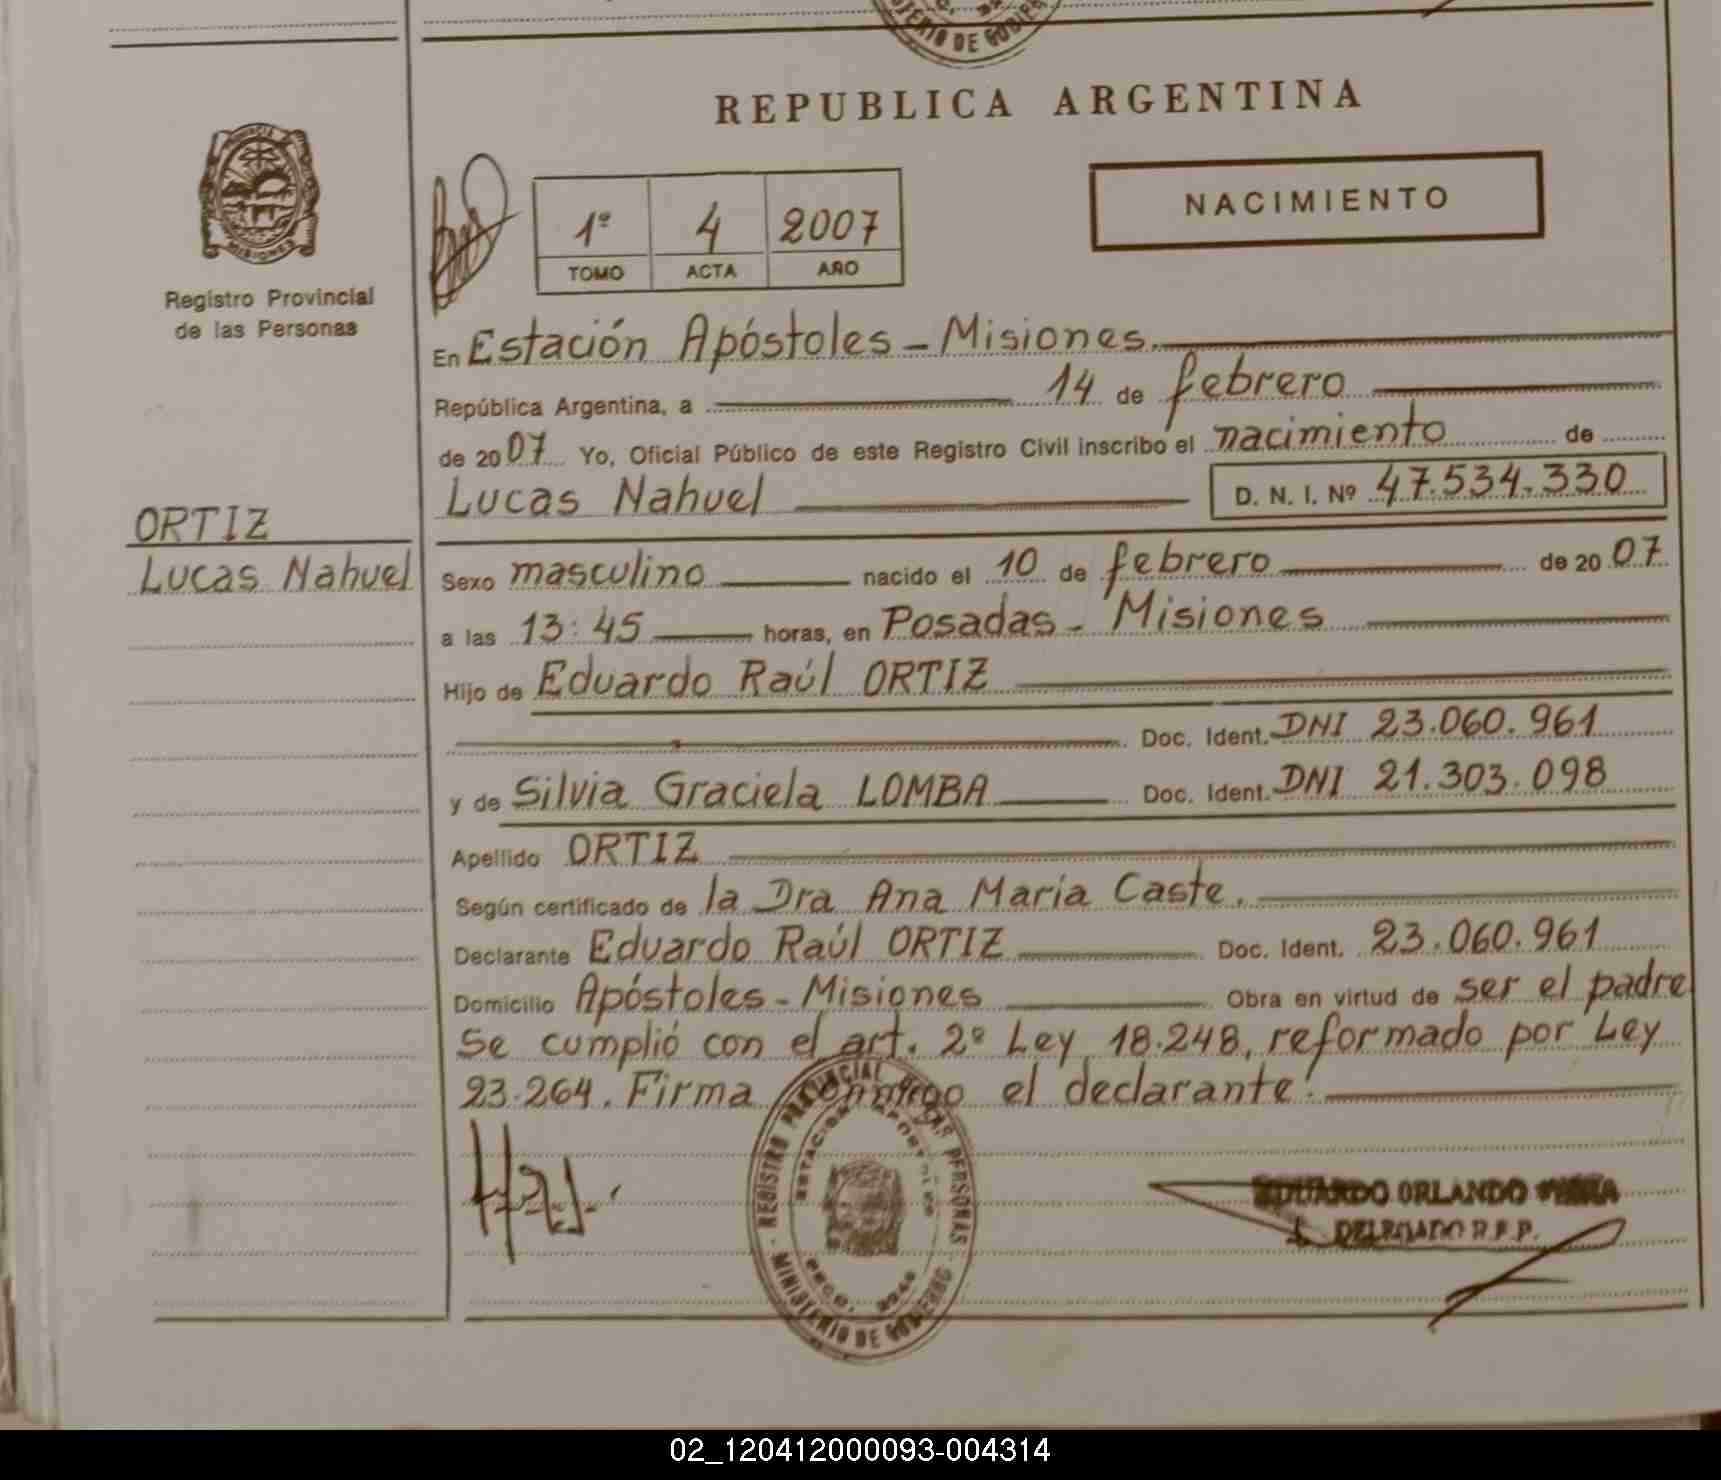 MINISTERIO DE GOBIERNO
REPUBLICA ARGENTINA
PROVINCIA
MISIONES
Registro Provincial
de las Personas
1º 4 2007
TOMO ACTA AÑO
NACIMIENTO
En Estación Apóstoles - Misiones.
República Argentina, a 14 de febrero
de 2007 Yo, Oficial Público de este Registro Civil inscribo el nacimiento de
Lucas Nahuel D. N. I. Nº 47.534.330
ORTIZ
Lucas Nahuel
Sexo masculino nacido el 10 de febrero de 2007
a las 13:45 horas, en Posadas - Misiones
Hijo de Eduardo Raúl ORTIZ
Doc. Ident. DNI 23.060.961
y de Silvia Graciela LOMBA Doc. Ident. DNI 21.303.098
Apellido ORTIZ
Según certificado de la Dra Ana Maria Caste.
Declarante Eduardo Raúl ORTIZ Doc. Ident. 23.060.961
Domicilio Apóstoles - Misiones Obra en virtud de ser el padre
Se cumplió con el art. 2º Ley 18.248, reformado por Ley
23.264. Firma conmigo el declarante.
REGISTRO PROVINCIAL DE LAS PERSONAS
ESTACION APOSTOLES
MINISTERIO DE GOBIERNO
EDUARDO ORLANDO
DELEGADO R.P.P.
02_120412000093-004314